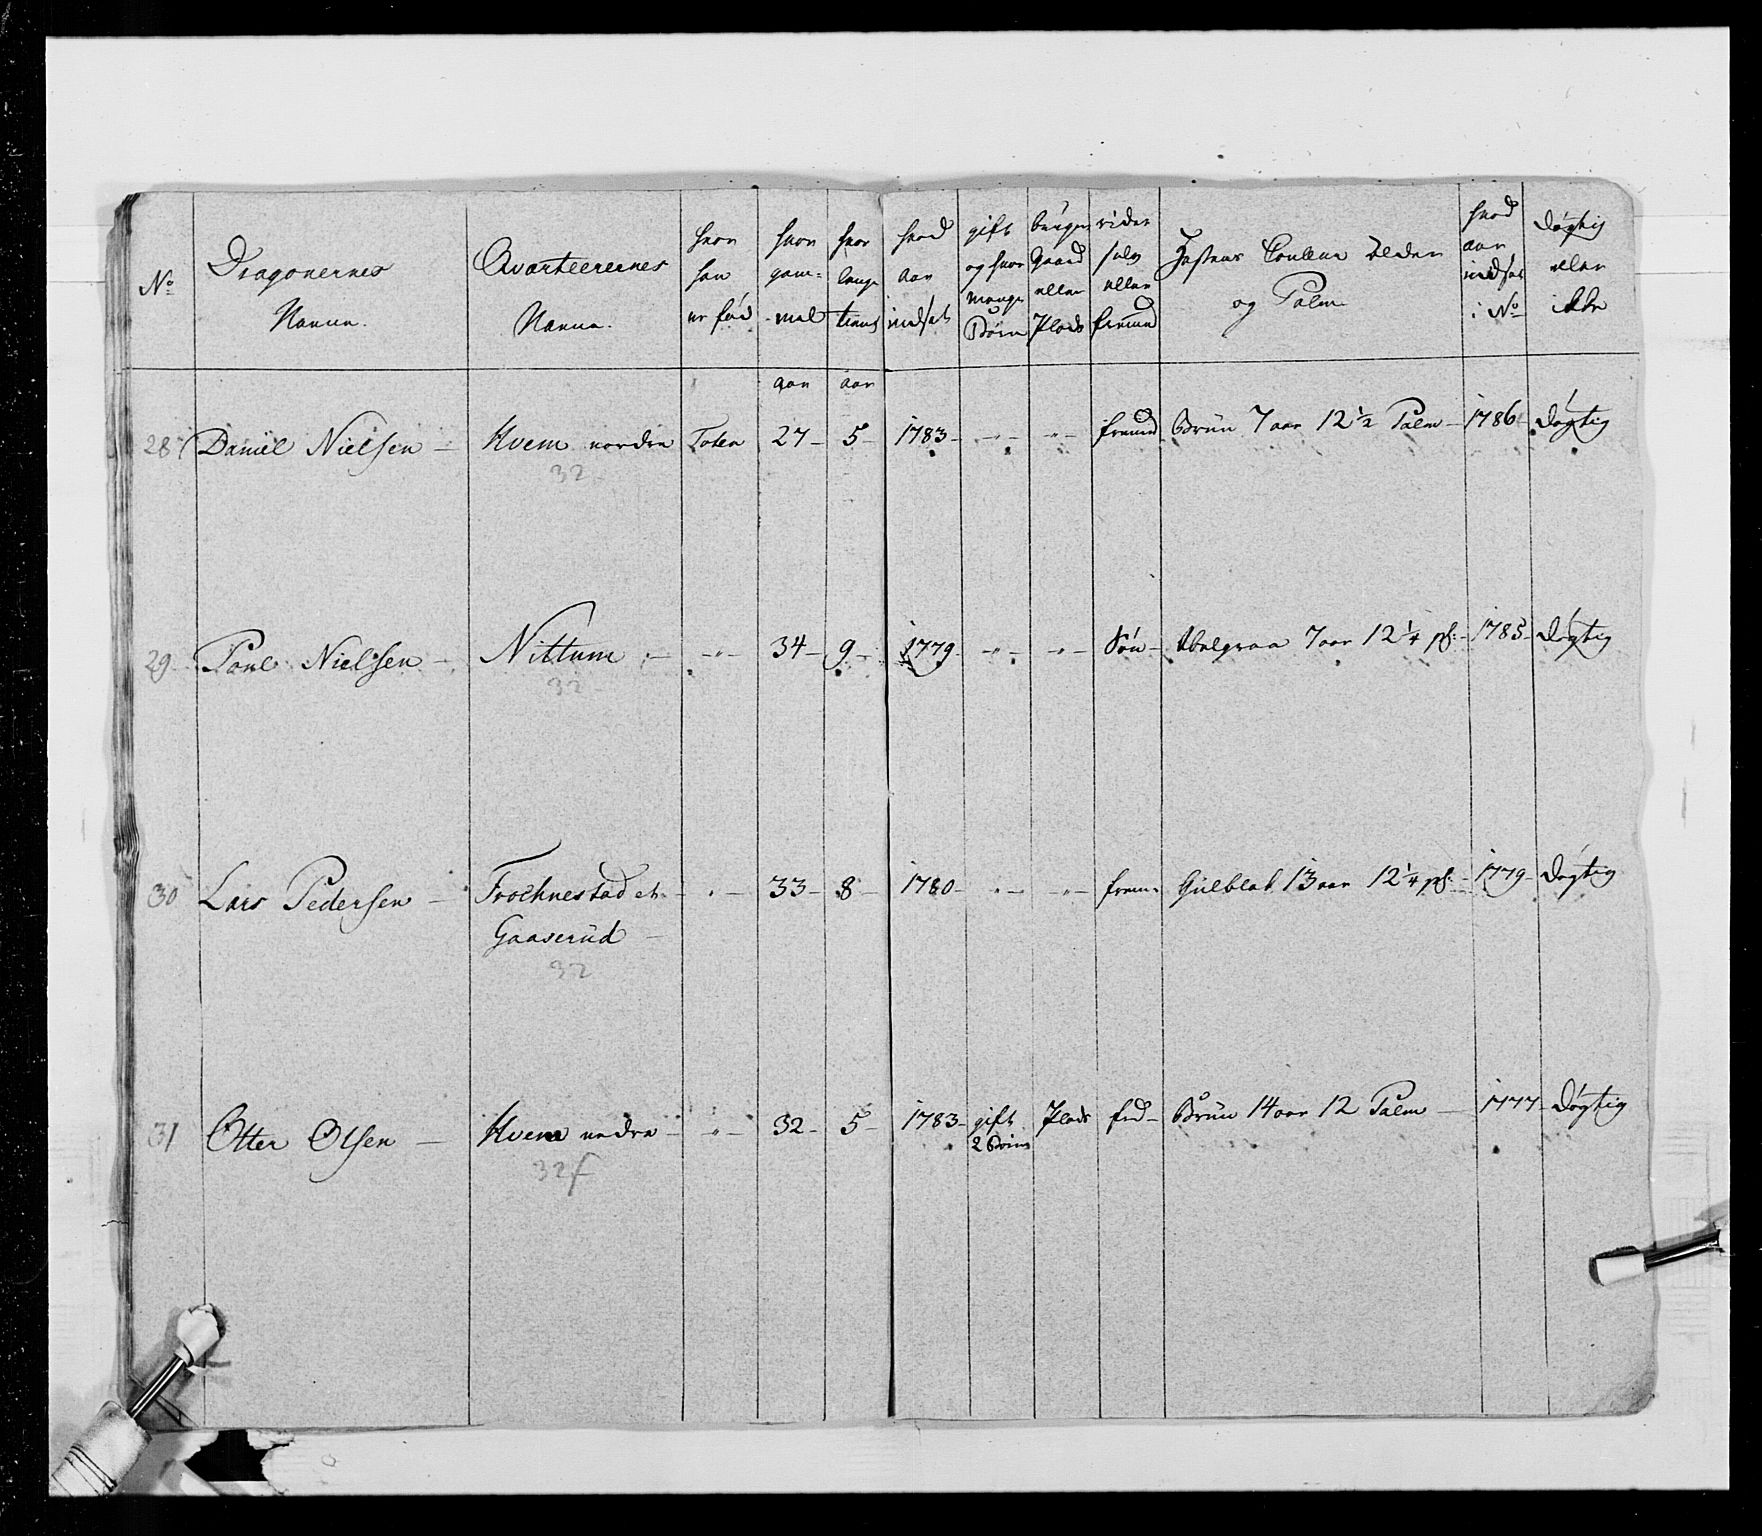 No
Dragonernes
Navne.
Qvarteerernes
Navne.
hvor
han
er fød
hvor
gam-
mel
hvor
lenge
tient
hvad
aar
indsat
gift
og hvor
mange
Börn
bruger
Gaard
eller
Plads
rider
selv
eller
fremd
Hestens Couleur Alder
og Palm
hvad
aar
indsat
i No
dögtig
eller
ikke
aar aar
28 Daniel Nielsen — Hvem nordre Toten 27 – 5 – 1783 – – " – – " – fremd Brün 7 aar 12 ½ Palm – 1786 – dögtig
32
29 Poul Nielsen – Nittum – – " – 34 – 9 – 1779 – – " – – " – Sön – Abelgraa 7 aar 12 ¼ pl: – 1785 – dögtig
32
30 Lars Pedersen – Frochnestad et – – " – 33 – 8 – 1780 – – " – – " – frem: Gülblak 13 aar 12 ¼ pl: – 1779 – dögtig
Gaaserüd –
32
31 Otter Olsen — Hvem nedre – – " – 32 – 5 – 1783 – gift Plads frd – Brün 14 aar 12 Palm — 1777 – dögtig
2 Börn
32f